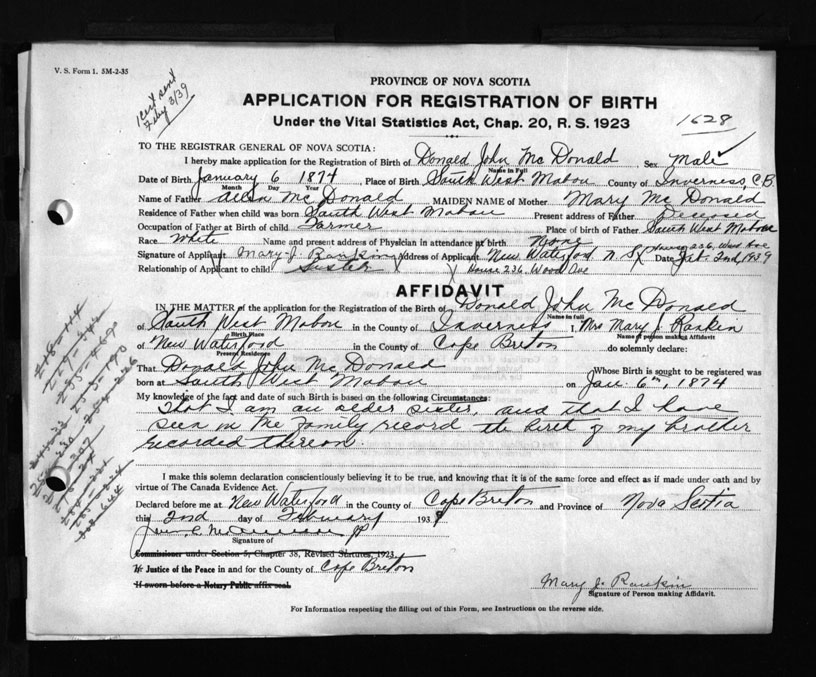 V. S. Form 1. 5M-2-35
1 cert sent
Feby 3/39
PROVINCE OF NOVA SCOTIA
APPLICATION FOR REGISTRATION OF BIRTH
Under the Vital Statistics Act, Chap. 20, R. S. 1923
1628
TO THE REGISTRAR GENERAL OF NOVA SCOTIA:
I hereby make application for the Registration of Birth of Donald John Mc Donald, Sex Male
Name in Full
Date of Birth January 6 1874, Place of Birth South West Mabou County of Inverness, C.B.
Month Day Year
Name of Father Allan Mc Donald MAIDEN NAME of Mother Mary Mc Donald
Residence of Father when child was born South West Mabou Present address of Father Deceased
Occupation of Father at Birth of child Farmer Place of birth of Father South West Mabou
Race White Name and present address of Physician in attendance at birth None
House 236, Wood Ave
Signature of Applicant Mary J. Rankin Address of Applicant New Waterford N. S. Date Feb. 2nd, 1939
Relationship of Applicant to child Sister House 236 Wood Ave
AFFIDAVIT
IN THE MATTER of the application for the Registration of the Birth of Donald John Mc Donald
Name in full
of South West Mabou in the County of Inverness I, Mrs Mary J. Rankin
Birth Place Name of person making Affidavit
of New Waterford in the County of Cape Breton do solemnly declare:
Present Residence
That Donald John Mc Donald Whose Birth is sought to be registered was
born at South West Mabou on Jan. 6th, 1874
My knowledge of the fact and date of such Birth is based on the following Circumstances:
That I am an older sister, and that I have
seen in the family record the birth of my brother
recorded thereon.
I make this solemn declaration conscientiously believing it to be true, and knowing that it is of the same force and effect as if made under oath and by
virtue of The Canada Evidence Act.
Declared before me at New Waterford in the County of Cape Breton and Province of Nova Scotia
this 2nd day of February 1939
J.P.
Signature of
Commissioner under Section 5, Chapter 38, Revised Statutes, 1923.
Justice of the Peace in and for the County of Cape Breton
If sworn before a Notary Public affix seal.
Mary J. Rankin
Signature of Person making Affidavit.
For Information respecting the filling out of this Form, see Instructions on the reverse side.